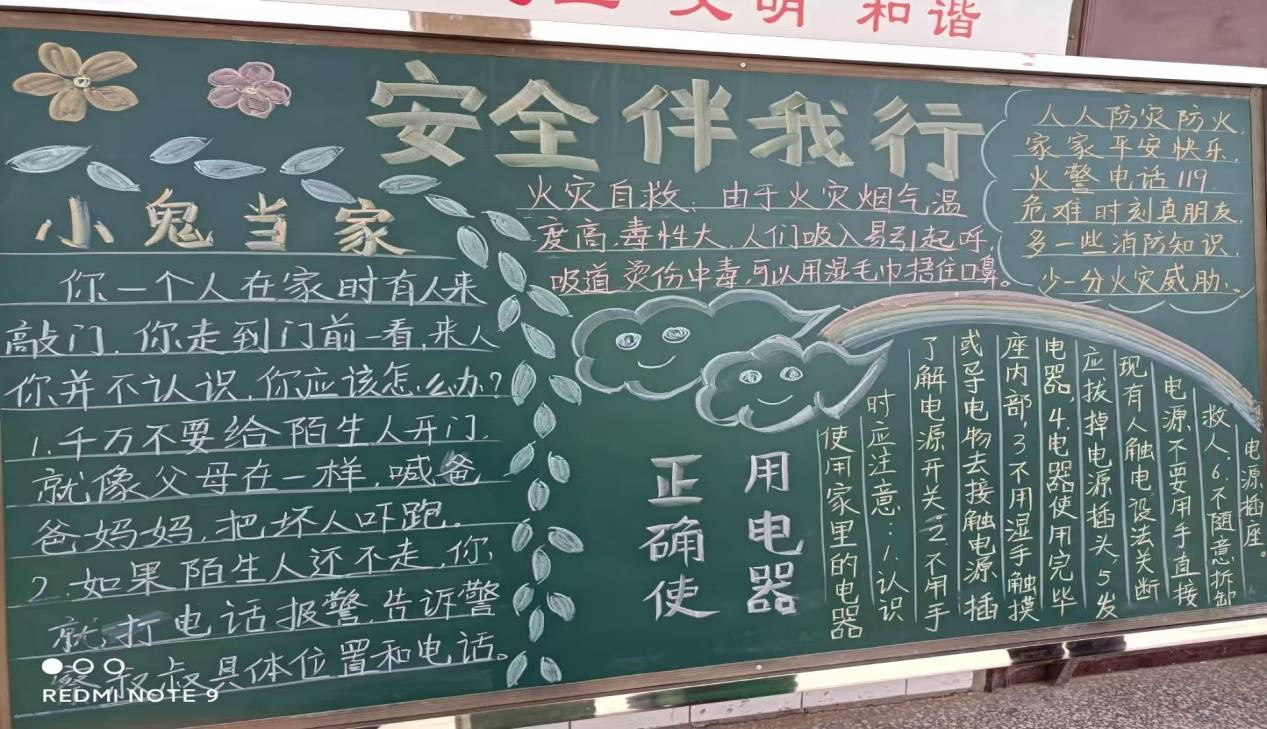 文明 和谐
安全伴我行
小鬼当家
你一个人在家时有人来
敲门，你走到门前一看，来人
你并不认识，你应该怎么办？
1.千万不要给陌生人开门，
就像父母在一样，喊爸
爸妈妈，把坏人吓跑。
2.如果陌生人还不走，你
就打电话报警，告诉警
察叔叔具体位置和电话。
火灾自救：由于火灾烟气温
度高，毒性大，人们吸入易引起呼
吸道烫伤中毒，可以用湿毛巾捂住口鼻。
人人防灾防火，
家家平安快乐，
火警电话119
危难时刻真朋友，
多一些消防知识，
少一分火灾威胁。
正确使
用电器
使用家里的电器
时应注意：1.认识
了解电源开关，2.不用手
或导电物去接触电源插
座内部，3不用湿手触摸
电器，4.电器使用完毕
应拔掉电源插头，5发
现有人触电设法关断
电源，不要用手直接
救人，6.不随意拆卸
电源插座。
REDMI NOTE 9